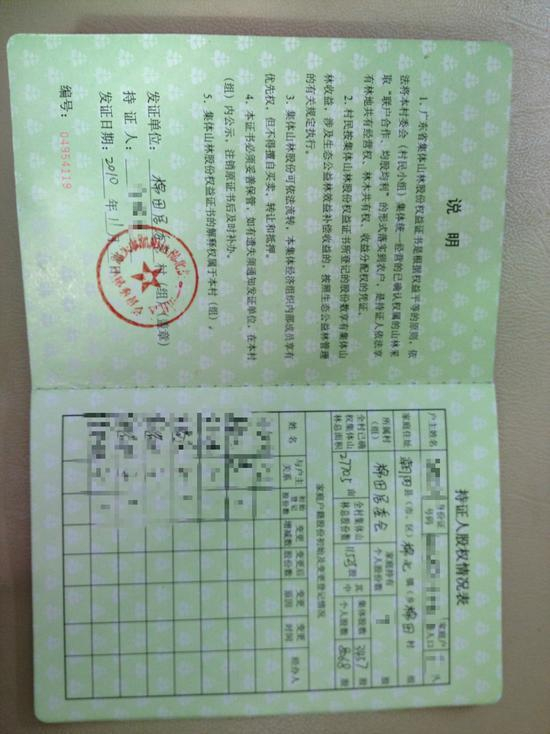 说 明
1. 广东省集体山林股份权益证书是根据权益平等的原则，依
法将本村委会（村民小组）集体统一经营的已确认权属的山林采
取“联户合作、均股均利”的形式落实到农户，是持证人依法享
有林地共有经营权、林木共有权、收益分配权的凭证。
2. 村民按集体山林股份权益证书所登记的股份数享有集体山
林收益，涉及生态公益林效益补偿收益的，按照生态公益林管理
的有关规定执行。
3. 集体山林股份可依法流转，本集体经济组织内部成员享有
优先权，但不得擅自买卖、转让和抵押。
4. 本证书必须妥善保管，如有遗失须通知发证单位，在本村
（组）内公示，注销原证书后及时补办。
5. 集体山林股份权益证书的解释权属于本村（组）。
发证单位：梅田居委 村（组）（盖章）
持 证 人：
发证日期：2010 年 11
编号：04954119
持证人股权情况表
户主姓名 身份证号码 家庭户籍人口 人
家庭住址 县（市、区） 镇（乡） 梅田 村 组
所属村（组） 梅田居委会 家庭持有个人股份数 股
全村已确权集体山林总面积 27705 亩 全村集体山林总股份数 股 其中 集体股数 3457 股 个人股数 8068 股
家庭户籍股份初始及变更登记情况
姓 名 与户主关系 初始登记股份数 变更增减数 变更后股份数 变更原因 变更时间 经办人